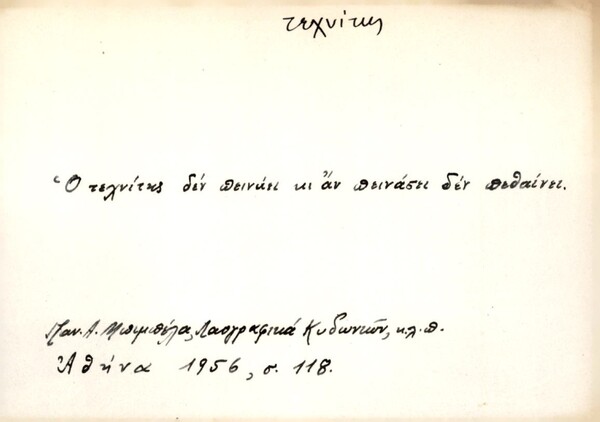 τεχνίτης
Ὁ τεχνίτης δέν πεινάει κι ἄν πεινάσει δέν πεθαίνει.
Παν. Λαογραφικά Κυδωνιῶν, κ.λ.π.
Ἀθήνα 1956, σ. 118.